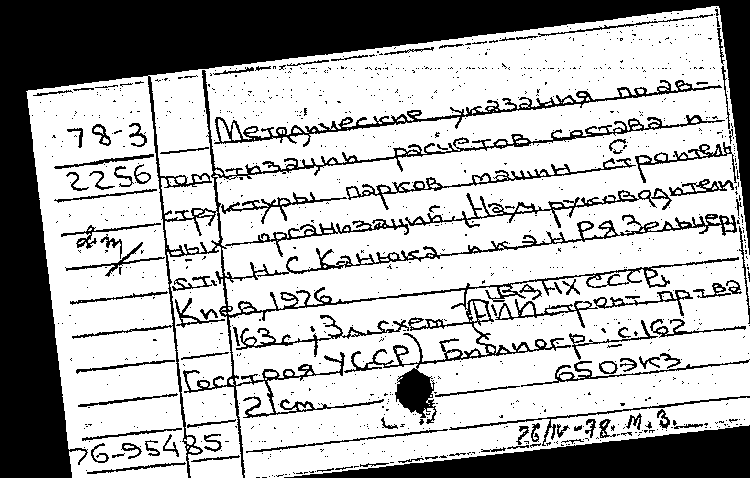 78-3
2256
Методические указания по ав-
томатизации расчетов состава и
структуры парков машин строитель
ных организаций. [Науч. руководители
д.т.н. Н.С. Канюка и к.э.н. Р.Я. Зельцер]
Киев, 1976.
163 с.; 3 л. схем (ВДНХ СССР.
НИИ строит. пр-ва
Госстроя УССР) Библиогр.: с. 162
21 cm. 650 экз.
76-95485
26/IV-78. М.З.